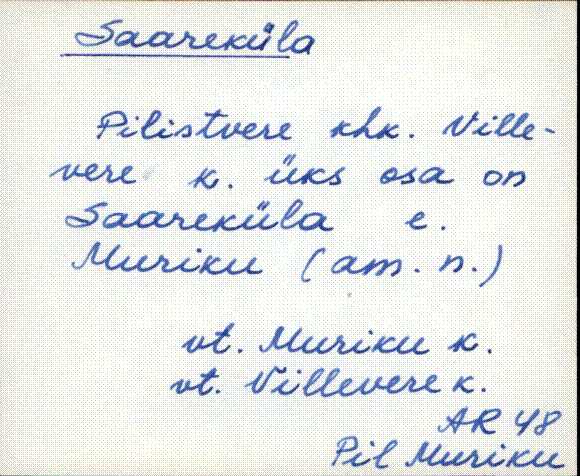 Saareküla
Pilistvere khk. Ville-
vere k. üks osa on
Saareküla e.
Muriku (am. n.)
vt. Muriku k.
vt. Villevere k.
AR 48
Pil Muriku